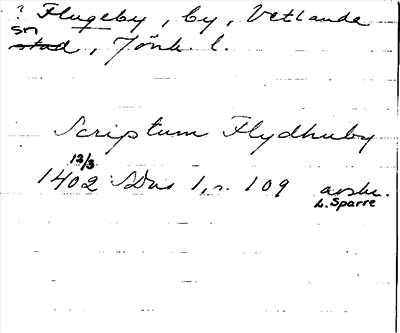 ? Flugeby, by, Vetlanda
sn
stad, Jönk. l.
Scriptum Flydhuby
12/3
1402 SDns 1, s. 109 avskr.
L. Sparre